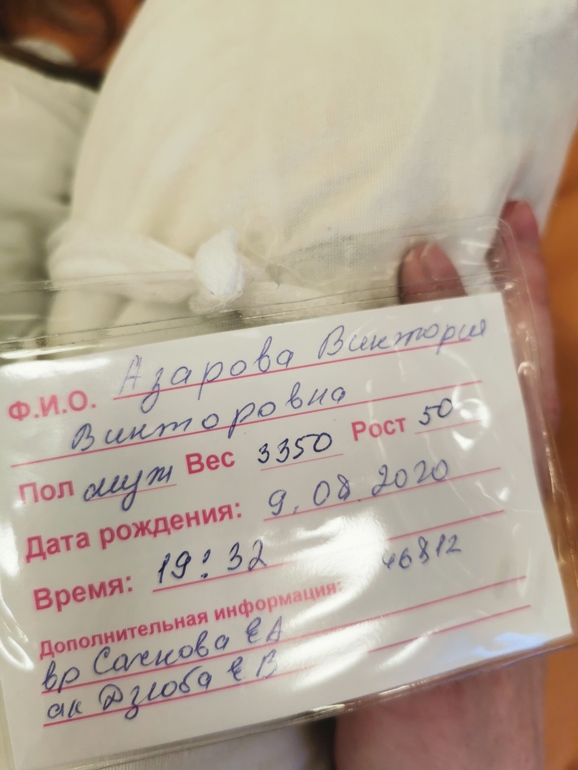 Ф.И.О. Азарова Виктория
Викторовна
Пол муж Вес 3350 Рост 50
Дата рождения: 9.08.2020
Время: 19:32 46812
Дополнительная информация:
вр Сачкова ЕА
ак Дзюба Е В